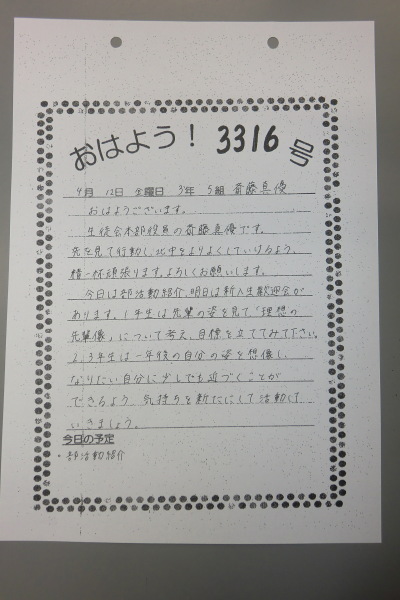 おはよう! 3316号
4月 12日 金曜日 3年 5組 斎藤真優
おはようございます。
生徒会本部役員の斎藤真優です。
先を見て行動し、北中をよりよくしていけるよう、
精一杯頑張ります。よろしくお願いします。
今日は部活動紹介、明日は新入生歓迎会が
あります。1年生は先輩の姿を見て“理想の
先輩像”について考え、目標を立ててみて下さい。
2,3年生は一年後の自分の姿を想像し、
なりたい自分に少しでも近づくことが
できるよう、気持ちを新たにして活動して
いきましょう。
今日の予定
・部活動紹介